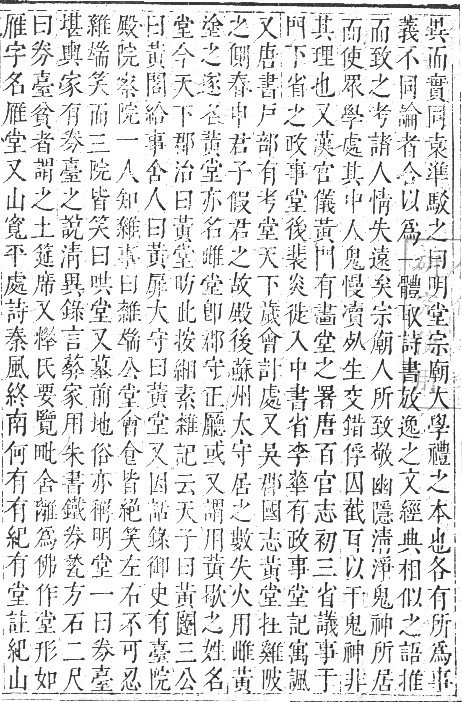 異而實同袁準駁之曰明堂宗廟大學禮之本也各有所爲事
義不同論者合以爲一體取詩書放逸之文經典相似之語推
而致之考諸人情失遠矣宗廟人所致敬幽隱清淨鬼神所居
而使眾學處其中人鬼慢瀆死生交錯俘囚截耳以干鬼神非
其理也又漢官儀黃門有畵堂之署唐百官志初三省議事于
門下省之政事堂後裴炎徙入中書省李華有政事堂記寓諷
又唐書戸部有考堂天下歲會計處又吳郡國志黃堂在雞陂
之側春申君子假君之故殿後蘇州太守居之數失火用雌黃
塗之遂名黃堂亦名雌堂卽郡守正廳或又謂用黃歇之姓名
堂今天下郡治曰黃堂昉此按緗素雜記云天子曰黃闥三公
曰黃閣給事舍人曰黃扉太守曰黃堂又因話錄御史有臺院
殿院察院一人知雜事曰雜端公堂會食皆絕笑左右不可忍
雜端笑而三院皆笑曰哄堂又墓前地俗亦稱明堂一曰券臺
堪輿家有券臺之說清異錄言葬家用朱書鐵券瓷方石二尺
曰券臺貧者謂之土筵席又釋氏要覽毗舍離爲佛作堂形如
雁字名雁堂又山寬平處詩秦風終南何有有紀有堂註紀山